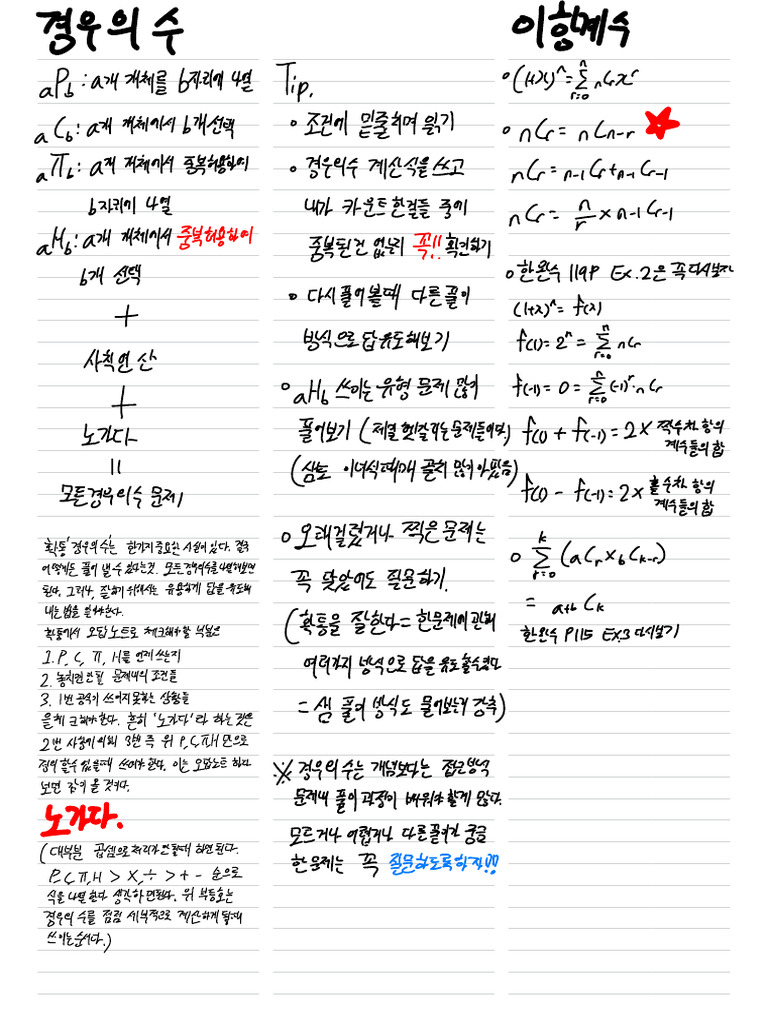 경우의 수
aPb : a개 개체를 b자리에 나열
aCb : a개 개체에서 b개 선택
aΠb : a개 개체에서 중복허용하여
b자리에 나열
aHb : a개 개체에서 중복허용하여
b개 선택
+
사칙연산
+
노가다
=
모든 경우의 수 문제!
확통 '경우의 수'는 한가지 중요한 사실이 있다. 결국
어떻게든 풀이 낼 수 있다는것. 모든 경우의수를 나열해보면
된다. 그러나, 잘하기 위해서는 유용하게 답을 유도해
내는 법을 알아야한다.
확통에서 오답노트로 체크해야할 부분은
1. P, C, Π, H를 언제 쓰는지
2. 놓치면 안될 문제내의 조건들
3. 1번 공식이 쓰이지 못하는 상황들
을 체크해야 한다. 흔히 '노가다'라 하는 것은
2번 사항에 의해 3번 즉 위 P,C,Π,H 만으로
정의할수 없을때 쓰여야 한다. 이는 오답노트 하다
보면 감이 올 것이다.
노가다.
(대부분 곱셈으로 처리가 안될때 하면 된다.
P,C,Π,H > ×,÷ > + - 순으로
식을 나열한다 생각하면된다. 위 부등호는
경우의 수를 점점 세부적으로 계산하게 될때
쓰이는 순서다.)
Tip.
○ 조건에 밑줄치며 읽기
○ 경우의수 계산식을 쓰고
내가 카운트한걸들 중에
중복된건 없는지 꼭!! 확인하기
○ 다시 풀어볼때 다른 풀이
방식으로 답 유도해보기
○ aHb 쓰이는 유형 문제 많이
풀어보기 (제일 헷갈리는 문제들이다)
(삼도 이녀석때매 골치 많이 아팠음)
○ 오래걸렸거나 찍은 문제는
꼭 맞았어도 질문하기.
(확통을 잘한다 = 한문제에 관해
여러가지 방식으로 답을 유도할수있다
= 쌤 풀이 방식도 물어보는거 강추)
※ 경우의 수는 개념보다는 접근방식
문제내 풀이 과정이 배워야 할게 많다.
모르거나 어렵거나 다른 풀이가 궁금
한 문제는 꼭 질문하도록하자!!
이항계수
○ (1+x)ⁿ = Σ(r=0, n) nCr xʳ
○ nCr = nCn-r
nCr = n-1Cr + n-1Cr-1
nCr = n/r × n-1Cr-1
○ 한완수 119P Ex.2은 꼭 다시보자
(1+x)ⁿ = f(x)
f(1) = 2ⁿ = Σ(r=0, n) nCr
f(-1) = 0 = Σ(r=0, n) (-1)ʳ·nCr
f(1) + f(-1) = 2 × 짝수차 항의
계수들의 합
f(1) - f(-1) = 2 × 홀수차 항의
계수들의 합
○ Σ(r=0, k) (aCr × bCk-r)
= a+bCk
한완수 P115 Ex.3 다시보기